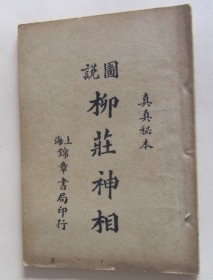 真真秘本
圖説
柳莊神相
上海
錦章書局印行